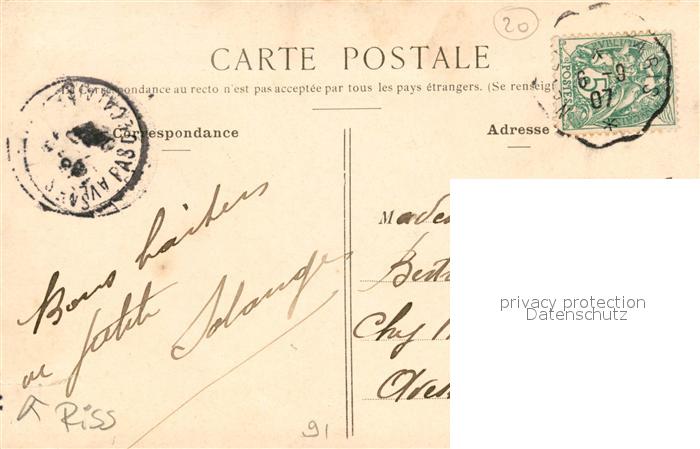 20
CARTE POSTALE
La Correspondance au recto n'est pas acceptée par tous les pays étrangers. (Se renseign
Correspondance
Adresse
6 -9
07
POSTES
PAS DE CALAIS
AVESNES
Bons baisers
de petite Solange
Made
Berth
Chez M
Aves
privacy protection
Datenschutz
Riss
91